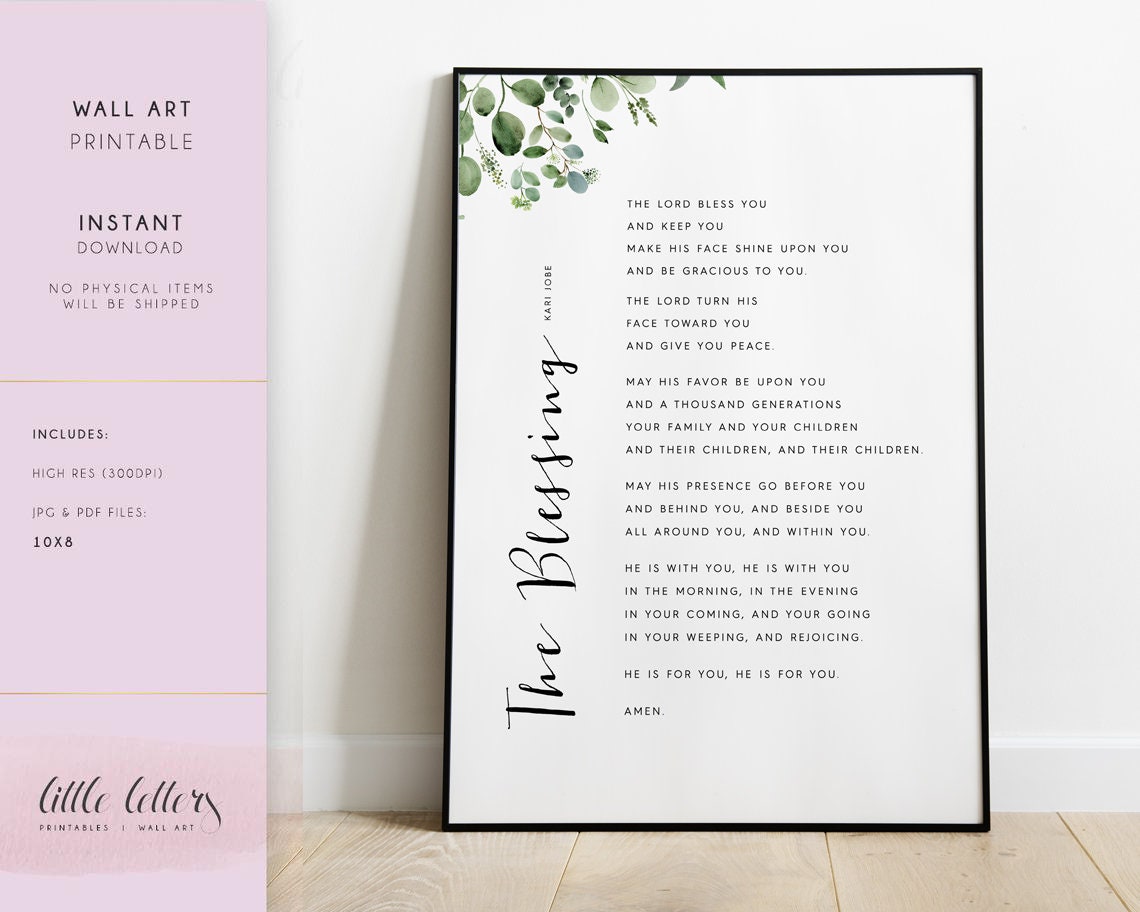 WALL ART
PRINTABLE
INSTANT
DOWNLOAD
NO PHYSICAL ITEMS
WILL BE SHIPPED
INCLUDES:
HIGH RES (300DPI)
JPG & PDF FILES:
10X8
little letters
PRINTABLES | WALL ART
The Blessing
KARI JOBE
THE LORD BLESS YOU
AND KEEP YOU
MAKE HIS FACE SHINE UPON YOU
AND BE GRACIOUS TO YOU.
THE LORD TURN HIS
FACE TOWARD YOU
AND GIVE YOU PEACE.
MAY HIS FAVOR BE UPON YOU
AND A THOUSAND GENERATIONS
YOUR FAMILY AND YOUR CHILDREN
AND THEIR CHILDREN, AND THEIR CHILDREN.
MAY HIS PRESENCE GO BEFORE YOU
AND BEHIND YOU, AND BESIDE YOU
ALL AROUND YOU, AND WITHIN YOU.
HE IS WITH YOU, HE IS WITH YOU
IN THE MORNING, IN THE EVENING
IN YOUR COMING, AND YOUR GOING
IN YOUR WEEPING, AND REJOICING.
HE IS FOR YOU, HE IS FOR YOU.
AMEN.